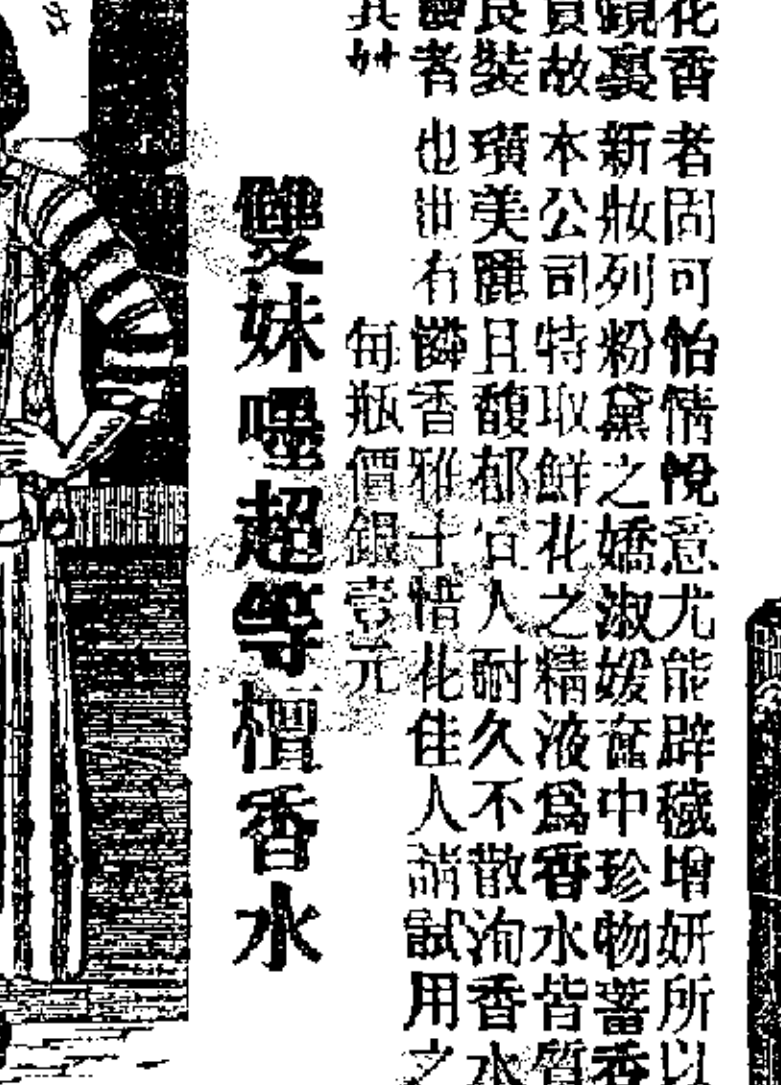 花香者固可怡情悅意尤能辟穢增妍所以
鏡裏新妝列粉黛之嬌淑媛奩中珍物蓄香
故本公司特取鮮花之精液爲香水皆質
良裝璜美麗且馥郁宜人耐久不散洵香水
者也世有憐香雅士惜花佳人請試用之
每瓶價銀壹元
雙妹嚜超等檀香水